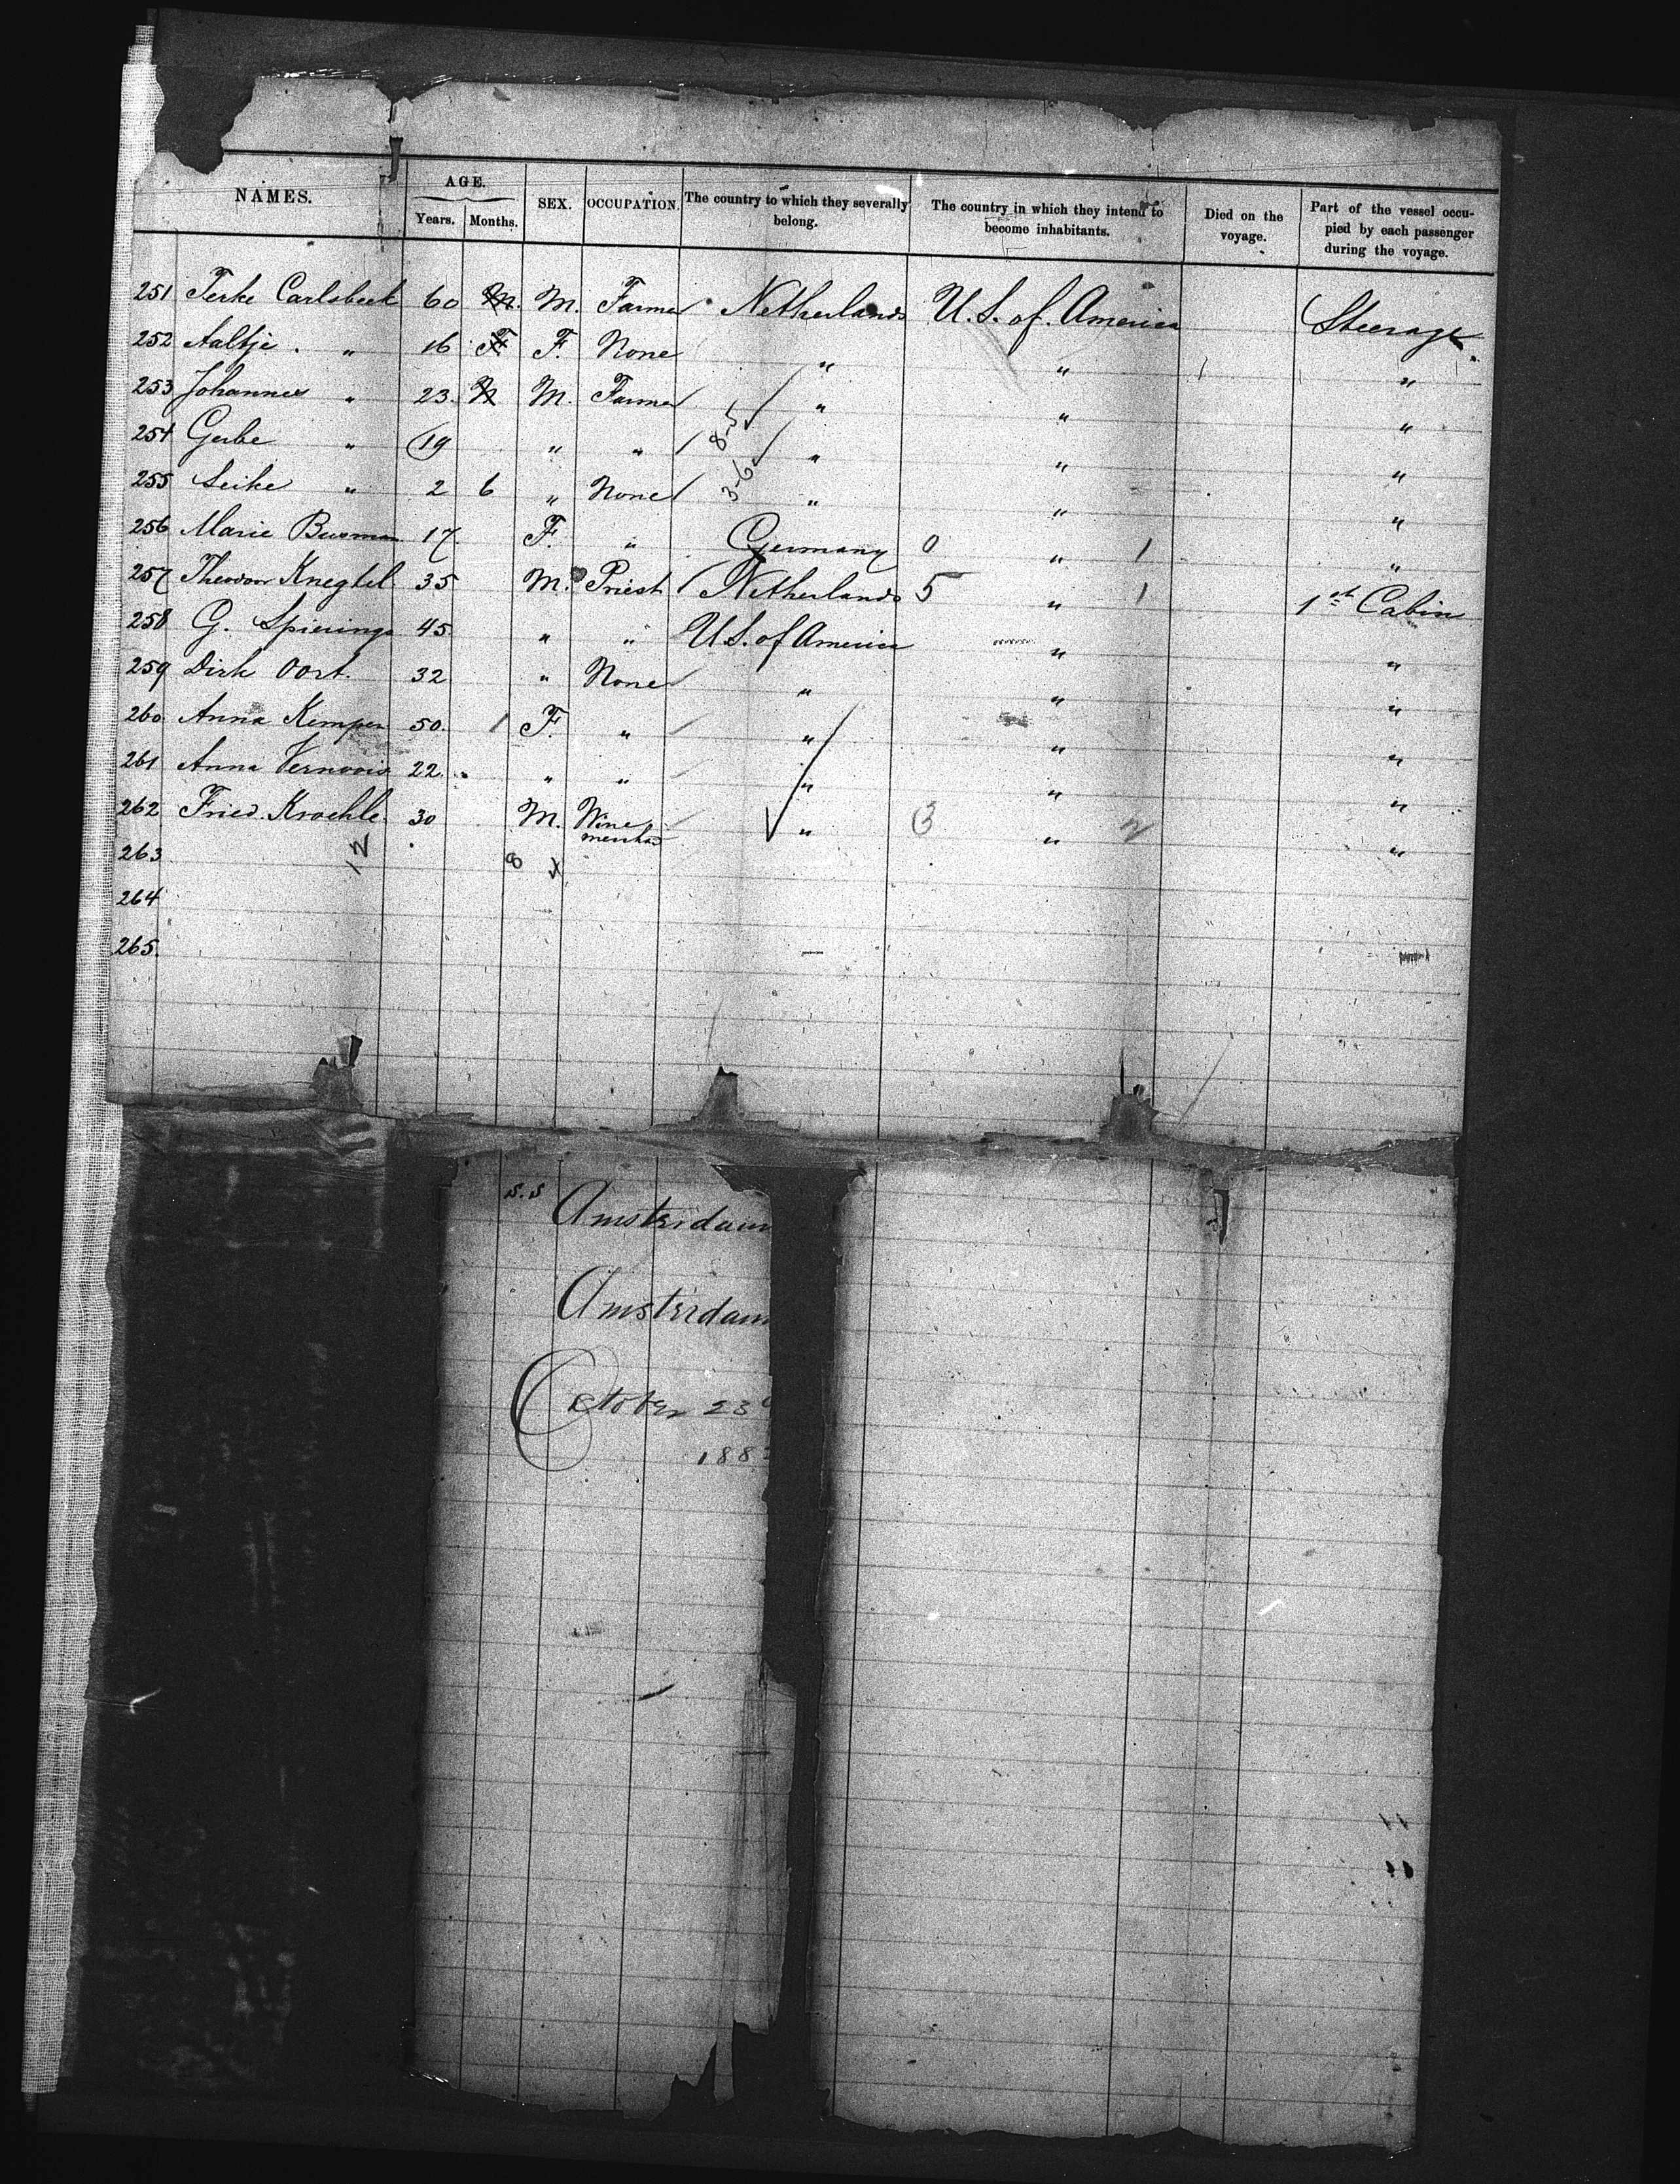 NAMES. AGE. Years. Months. SEX. OCCUPATION. The country to which they severally belong. The country in which they intend to become inhabitants. Died on the voyage. Part of the vessel occupied by each passenger during the voyage.
251 Terke Carlsbeek 60 M. M. Farmer Netherlands U.S. of America Steerage.
252 Aaltje " 16 F F. None " " "
253 Johannes " 23. M M. Farmer " " "
254 Gerbe " 19 " " 8-5 " " "
255 Seike " 2 6 " None 3-6 " " "
256 Marie Busman 17. F. " Germany 0 " 1 "
257 Theodoor Kneghtel 35 M. Priest Netherlands 5 " 1 1st Cabin
258 G. Spierings 45. " " U.S. of America " "
259 Dirk Oort. 32 " None " " "
260 Anna Kemper 50. 1 F. " " " "
261 Anna Vernoois 22. " " " " "
262 Fried. Kroehle. 30 M. Wine merchant " 3 " 2 "
263 12 8 4
264
265.
S.S Amsterdam
Amsterdam
October 23
188